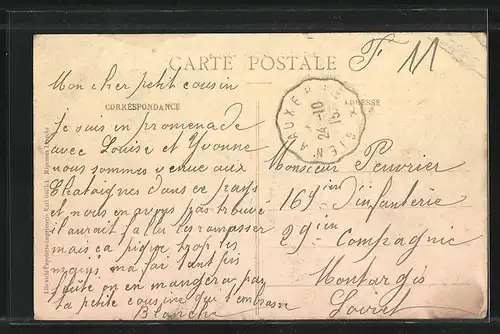 CARTE POSTALE
F M
Mon cher petit cousin
CORRESPONDANCE
ADRESSE
Je suis en promenade
avec Louise et Yvonne
nous sommes venue aux
Chataignes dans ce pays
et nous en avons pas trouvé
il aurait fallu les ramasser
mais ça pique trop les
mains, ma fai tant pis
on en mangera pas
ta petite cousine qui t'embrasse
Blanche
AUXERRE GIEN
24 -10
Monsieur Peuvrier
169ième d'infanterie
29ième Compagnie
Montargis
Loiret